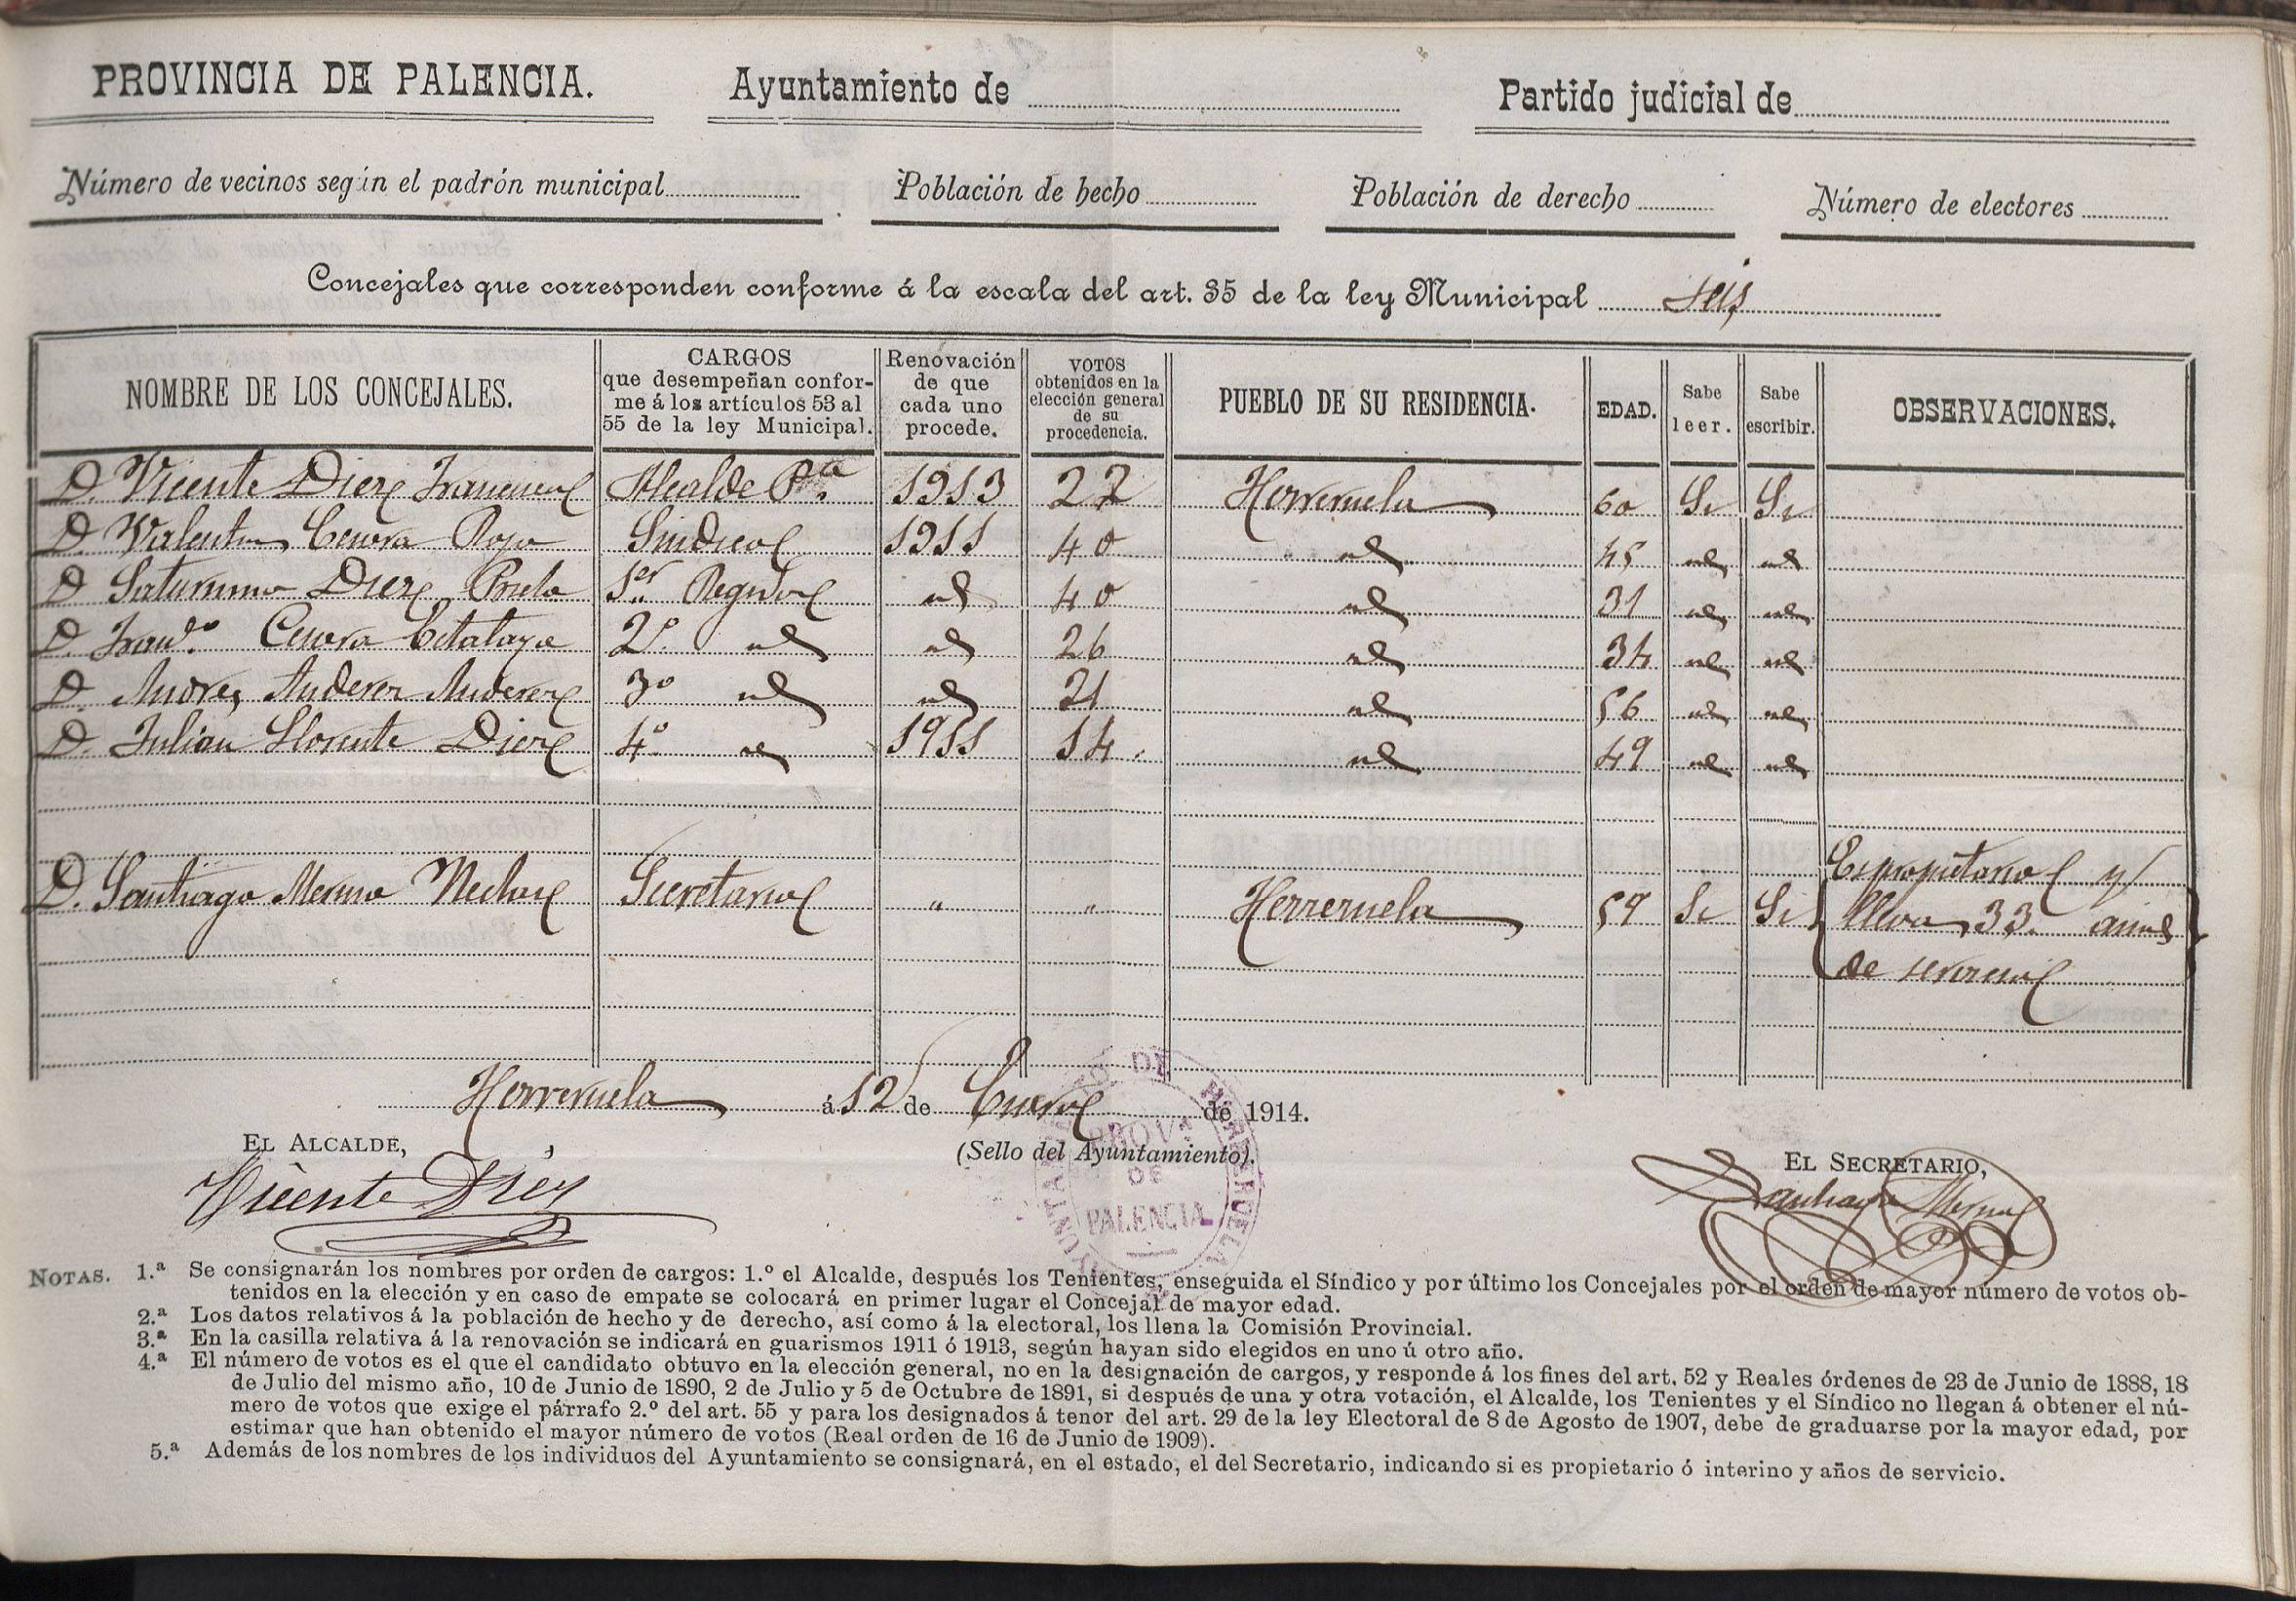 PROVINCIA DE PALENCIA. Ayuntamiento de Partido judicial de
Número de vecinos según el padrón municipal Población de hecho Población de derecho Número de electores
Concejales que corresponden conforme á la escala del art. 35 de la ley Municipal seis
NOMBRE DE LOS CONCEJALES.
CARGOS
que desempeñan confor-
me á los artículos 53 al
55 de la ley Municipal.
Renovación
de que
cada uno
procede.
VOTOS
obtenidos en la
elección general
de su
procedencia.
PUEBLO DE SU RESIDENCIA.
EDAD.
Sabe
leer.
Sabe
escribir.
OBSERVACIONES.
D. Vicente Diez Alcalde P.te 1913 22 Herreruela 60 Si Si
D. Valentin Cenera Rojo Sindico 1911 40 id 45 id id
D Saturnino Diez Prieto 1er Regidor id 40 id 31 id id
D. Franco. Cenera 2º. id id 26 id 34 id id
D. Andres Anderez Anderez 3º id id 21 id 56 id id
D. Julian Llorente Diez 4º id 1911 14. id 49 id id
D. Santiago Merino Secretario " " Herreruela 59 Si Si
Es propietario y
lleva 33. años
de servicio
Herreruela á 12 de Enero de 1914.
EL ALCALDE,
(Sello del Ayuntamiento).
EL SECRETARIO,
Vicente Diez
Santiago Merino
AYUNTAMIENTO DE HERRERUELA
PROVª
DE
PALENCIA
NOTAS. 1.ª Se consignarán los nombres por orden de cargos: 1.º el Alcalde, después los Tenientes, enseguida el Síndico y por último los Concejales por el orden de mayor número de votos ob-
tenidos en la elección y en caso de empate se colocará en primer lugar el Concejal de mayor edad.
2.ª Los datos relativos á la población de hecho y de derecho, así como á la electoral, los llena la Comisión Provincial.
3.ª En la casilla relativa á la renovación se indicará en guarismos 1911 ó 1913, según hayan sido elegidos en uno ú otro año.
4.ª El número de votos es el que el candidato obtuvo en la elección general, no en la designación de cargos, y responde á los fines del art. 52 y Reales órdenes de 23 de Junio de 1888, 18
de Julio del mismo año, 10 de Junio de 1890, 2 de Julio y 5 de Octubre de 1891, si después de una y otra votación, el Alcalde, los Tenientes y el Síndico no llegan á obtener el nú-
mero de votos que exige el párrafo 2.º del art. 55 y para los designados á tenor del art. 29 de la ley Electoral de 8 de Agosto de 1907, debe de graduarse por la mayor edad, por
estimar que han obtenido el mayor número de votos (Real orden de 16 de Junio de 1909).
5.ª Además de los nombres de los individuos del Ayuntamiento se consignará, en el estado, el del Secretario, indicando si es propietario ó interino y años de servicio.